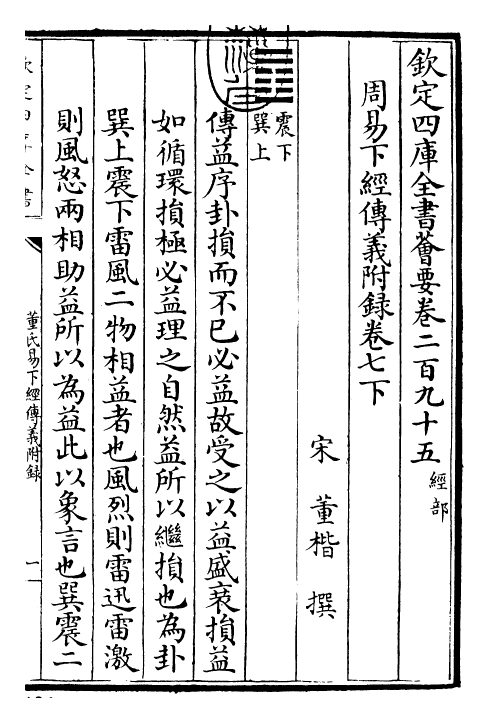 欽定四庫全書薈要卷二百九十五 經部
周易下經傳義附錄卷七下
宋 董楷 撰
震下
巽上
傳益序卦損而不已必益故受之以益盛衰損益
如循環損極必益理之自然益所以繼損也為卦
巽上震下雷風二物相益者也風烈則雷迅雷激
則風怒兩相助益所以為益此以象言也巽震二
欽定四庫全書
董氏易下經傳義附録
一